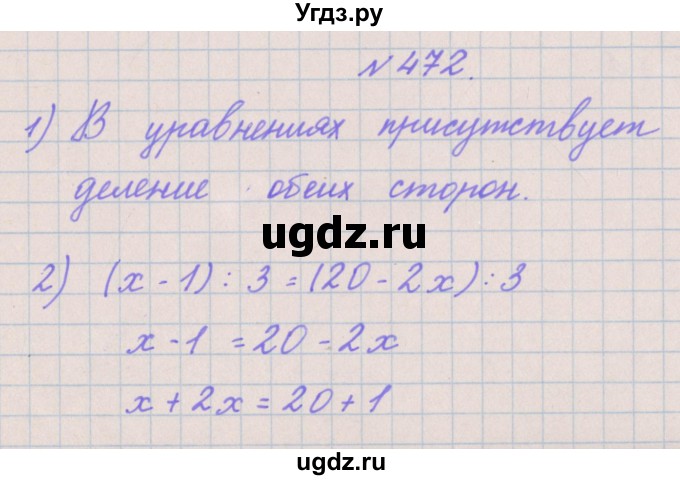 Угдз.ру
№472.
1) В уравнениях присутствует
деление обеих сторон.
ugdz.ru
2) (x - 1) : 3 = (20 - 2x) : 3
x - 1 = 20 - 2x
x + 2x = 20 + 1
ugdz.ru